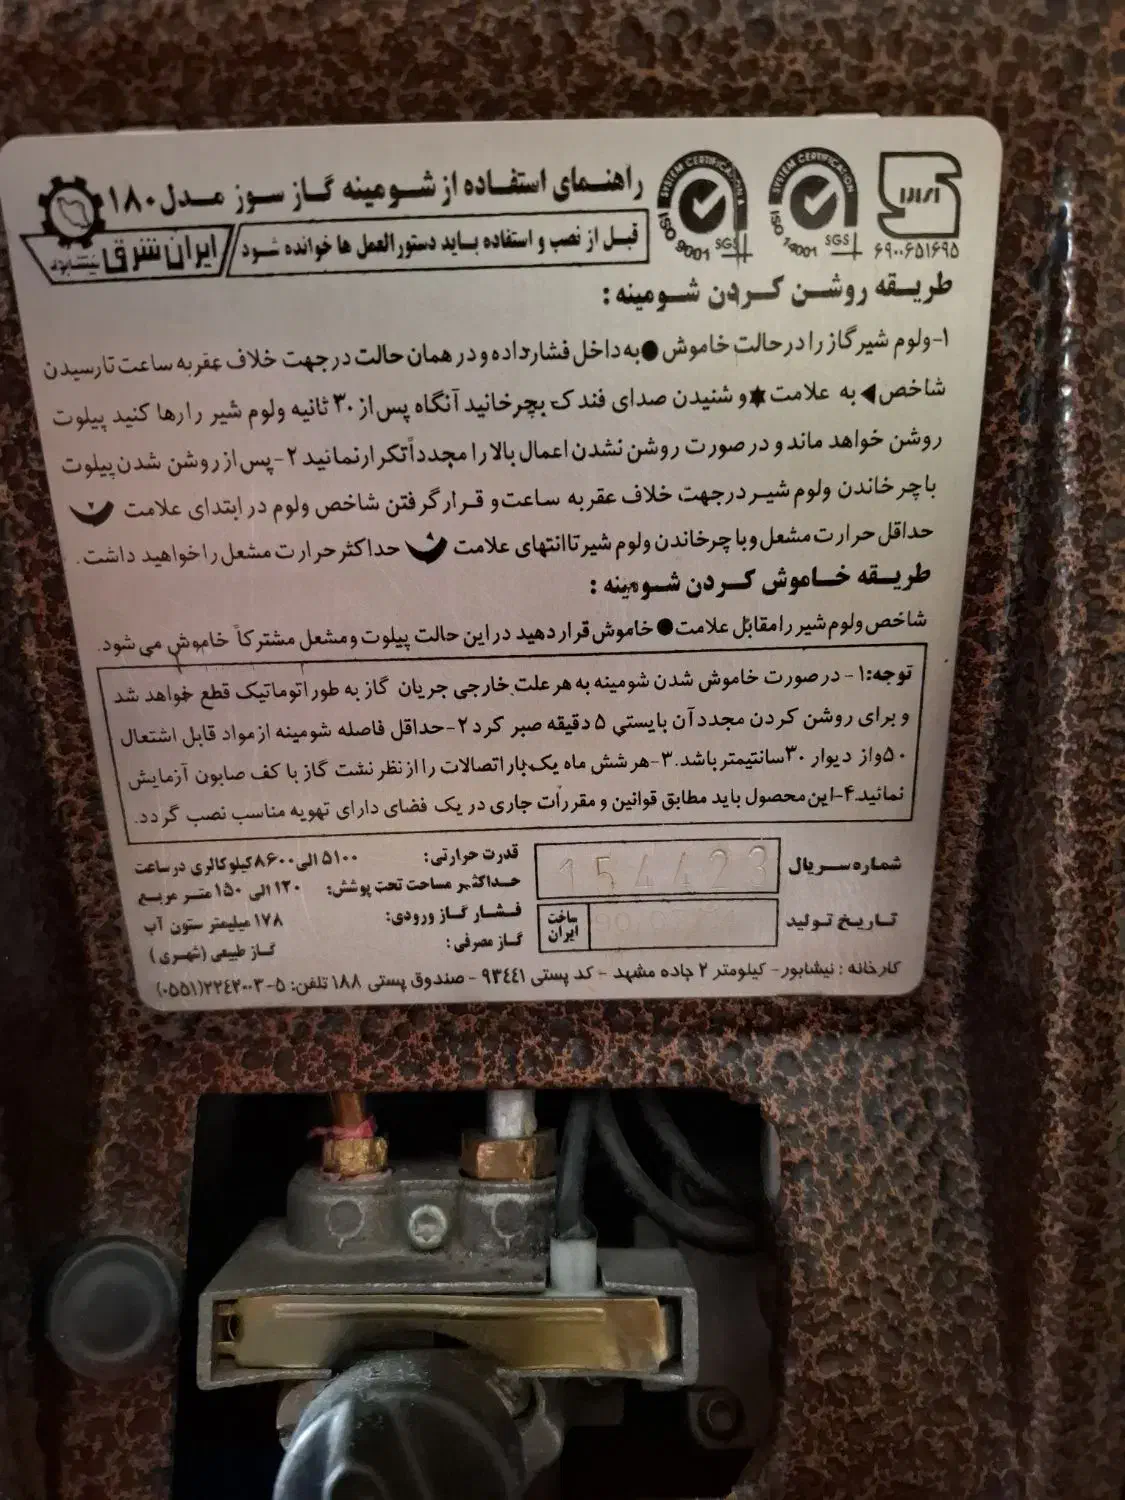 راهنمای استفاده از شومینه گاز سوز مدل ۱۸۰
قبل از نصب و استفاده باید دستورالعمل ها خوانده شود
ایران شرق نیشابور
SYSTEM CERTIFICATION ISO 9001 SGS
SYSTEM CERTIFICATION ISO 14001 SGS
۶۹۰۰۶۵۱۶۹۵
طریقه روشن کردن شومینه :
۱-ولوم شیر گاز را در حالت خاموش ● به داخل فشار داده و در همان حالت در جهت خلاف عقربه ساعت تا رسیدن
شاخص ◀ به علامت ★ و شنیدن صدای فندک بچرخانید آنگاه پس از ۳۰ ثانیه ولوم شیر را رها کنید پیلوت
روشن خواهد ماند و در صورت روشن نشدن اعمال بالا را مجدداً تکرار نمائید ۲-پس از روشن شدن پیلوت
با چرخاندن ولوم شیر در جهت خلاف عقربه ساعت و قرار گرفتن شاخص ولوم در ابتدای علامت
حداقل حرارت مشعل و با چرخاندن ولوم شیر تا انتهای علامت حداکثر حرارت مشعل را خواهید داشت .
طریقه خاموش کردن شومینه :
شاخص ولوم شیر را مقابل علامت ● خاموش قرار دهید در این حالت پیلوت و مشعل مشترکاً خاموش می شود.
توجه:۱- در صورت خاموش شدن شومینه به هر علت خارجی جریان گاز به طور اتوماتیک قطع خواهد شد
و برای روشن کردن مجدد آن بایستی ۵ دقیقه صبر کرد ۲-حداقل فاصله شومینه از مواد قابل اشتعال
۵۰ و از دیوار ۳۰ سانتیمتر باشد. ۳-هر شش ماه یک بار اتصالات را از نظر نشت گاز با کف صابون آزمایش
نمائید. ۴-این محصول باید مطابق قوانین و مقررات جاری در یک فضای دارای تهویه مناسب نصب گردد.
شماره سریال 154423
تاریخ تولید
ساخت ایران
قدرت حرارتی: ۵۱۰۰ الی ۸۶۰۰ کیلو کالری در ساعت
حداکثر مساحت تحت پوشش: ۱۲۰ الی ۱۵۰ متر مربع
فشار گاز ورودی: ۱۷۸ میلیمتر ستون آب
گاز مصرفی: گاز طبیعی (شهری)
کارخانه : نیشابور- کیلومتر ۲ جاده مشهد - کد پستی ۹۳۴۴۱ - صندوق پستی ۱۸۸ تلفن: ۵-۲۲۴۲۰۰۳(۰۵۵۱)